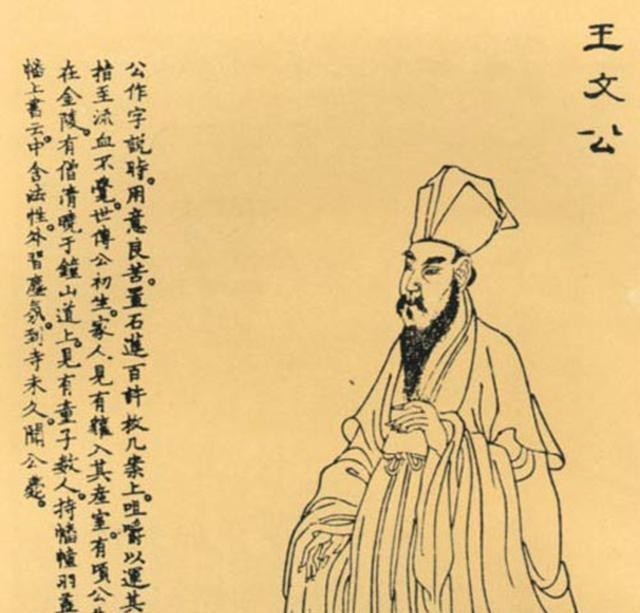 王文公
公作字說時。用意良苦。置石蓮百許枚几案上。咀嚼以運其
指至流血不覺。世傳公初生。家人見有獾入其產室。有頃公
在金陵。有僧清曉于鐘山道上。見有童子數人。持幡幢羽蓋
幡上書云。中含法性。外習塵氛。到寺未久。聞公薨。